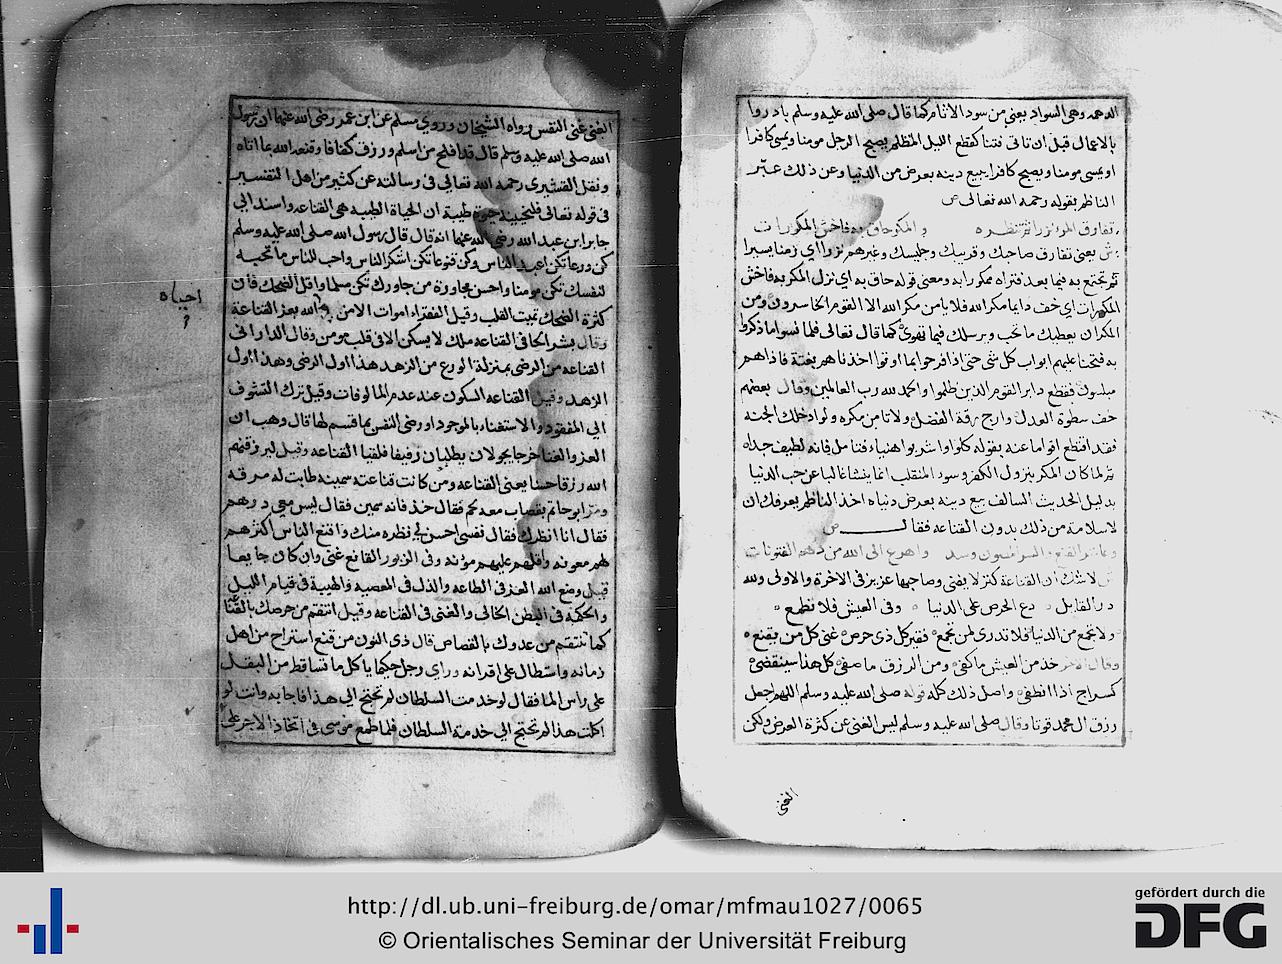 الدهمه وهي السواد يعني من سود الاثام كما قال صلى الله عليه وسلم بادروا
بالاعمال قبل ان تاتى فتنا كقطع الليل المظلم يصبح الرجل مومنا ويمسى كافرا
او يمسى مومنا ويصبح كافرا يبيع دينه بعرض من الدنيا وعن ذلك عبّر
الناظم بقوله رحمه الله تعالى ص
تفارق المكر حاق به فاخش المكرات
ش يعنى تفارق صاحبك وقريبك وجليسك وغيرهم نزرا اى زمنا يسيرا
ثم تجتمع به فيما بعد فتراه ممكورا به ومعنى قوله حاق به اى نزل المكر به فاخش
المكرات اي خف دايما مكر الله فلا يامن مكر الله الا القوم الخاسرون ومن
المكر ان يعطيك ما تحب ويرسلك فيما تهوى كما قال تعالى فلما نسوا ما ذكروا
به فتحنا عليهم ابواب كل شى حتى اذا فرحوا بما اوتوا اخذناهم بغتة فاذا هم
مبلسون فقطع دابر القوم الذين ظلموا والحمد لله رب العالمين وقال بعضهم
خف سطوة العدل وارج رقة الفضل ولا تامن مكره ولو ادخلك الجنه
فقد اقتطع اقواما عنه بقوله كلوا واشربوا هنيا فتامل فانه لطيف جدا ه
ثم لما كان المكر بنزول الكفر وسود المنقلب انما ينشا غالبا عن حب الدنيا
بدليل الحديث السالف يبيع دينه بعرض دنياه اخذ الناظم يعرفك ان
لا سلامة من ذلك بدون القناعه فقال ص
واهرع الى الله من دهم الفتونات
ش لا شك ان القناعة كنز لا يفنى وصاحبها عزيز فى الاخرة والاولى ولله
در القايل دع الحرص على الدنيا وفى العيش فلا تطمع
ولا تجمع من الدنيا فلا تدرى لمن تجمع فقير كل ذى حرص غنى كل من يقنع
وقال الاخر خذ من العيش ما كفى ومن الرزق ما صفى كل هذا سينقضى
كسراج اذا انطفى واصل ذلك كله قوله صلى الله عليه وسلم اللهم اجعل
رزق ال محمد قوتا وقال صلى الله عليه وسلم ليس الغنى عن كثرة العرض ولكن
الغنى
الغنى غنى النفس رواه الشيخان وروى مسلم عن ابن عمر رضى الله عنهما ان رسول
الله صلى الله عليه وسلم قال قد افلح من اسلم ورزق كفافا وقنعه الله بما اتاه
ونقل القشيرى رحمه الله تعالى فى رسالته عن كثير من اهل التفسير
فى قوله تعالى فلنحيينه حيوة طيبة ان الحياة الطيبه هى القناعه واسند الى
جابر ابن عبد الله رضى الله عنهما انه قال قال رسول الله صلى الله عليه وسلم
كن ورعا تكن اعبد الناس وكن قنوعا تكن اشكر الناس واحب للناس ما تحبه
لنفسك تكن مومنا واحسن مجاورة من جاورك تكن مسلما واقل الضحك فان
كثرة الضحك تميت القلب وقيل الفقراء اموات الا من الله بعز القناعة
احياه
وقال بشر الحافى القناعه ملك لا يسكن الا فى قلب مومن وقال الدارانى
القناعه من الرضى بمنزلة الورع من الزهد هذا اول الرضى وهذا اول
الزهد وقيل القناعه السكون عند عدم المالوفات وقيل ترك التشوف
الى المفقود والاستغناء بالموجود او رضى النفس بما قسم لها قال وهب ان
العز والغنا خرجا يجولان يطلبان رفيقا فلقيا القناعه وقيل ليرزقنهم
الله رزقا حسنا يعنى القناعه ومن كانت قناعته سمينه طابت له مرقه
ومر ابو حاتم بقصاب معه لحم فقال خذ فانه سمين فقال ليس معى درهم
فقال انا انظرك فقال نفسى احسن لى نظره منك واقنع الناس اكثرهم
لهم معونه واقلهم عليهم مؤنه وفى الزبور القانع غنى وان كان جايعا
قيل وضع الله العز فى الطاعه والذل فى المعصيه والهيبة فى قيام الليل
والحكمة فى البطن الخالى والغنى فى القناعه وقيل انتقم من حرصك بالقناعة
كما تنتقم من عدوك بالقصاص قال ذى النون من قنع استراح من اهل
زمانه واستطال على اقرانه وراى رجل حكيما ياكل ما تساقط من البقل
على راس الما فقال لو خدمت السلطان لم تحتج الى هذا فاجابه وانت لو
اكلت هذا لم تحتج الى خدمة السلطان فلما طمع موسى فى اتخاذ الاجر على
http://dl.ub.uni-freiburg.de/omar/mfmau1027/0065
© Orientalisches Seminar der Universität Freiburg
gefördert durch die
DFG